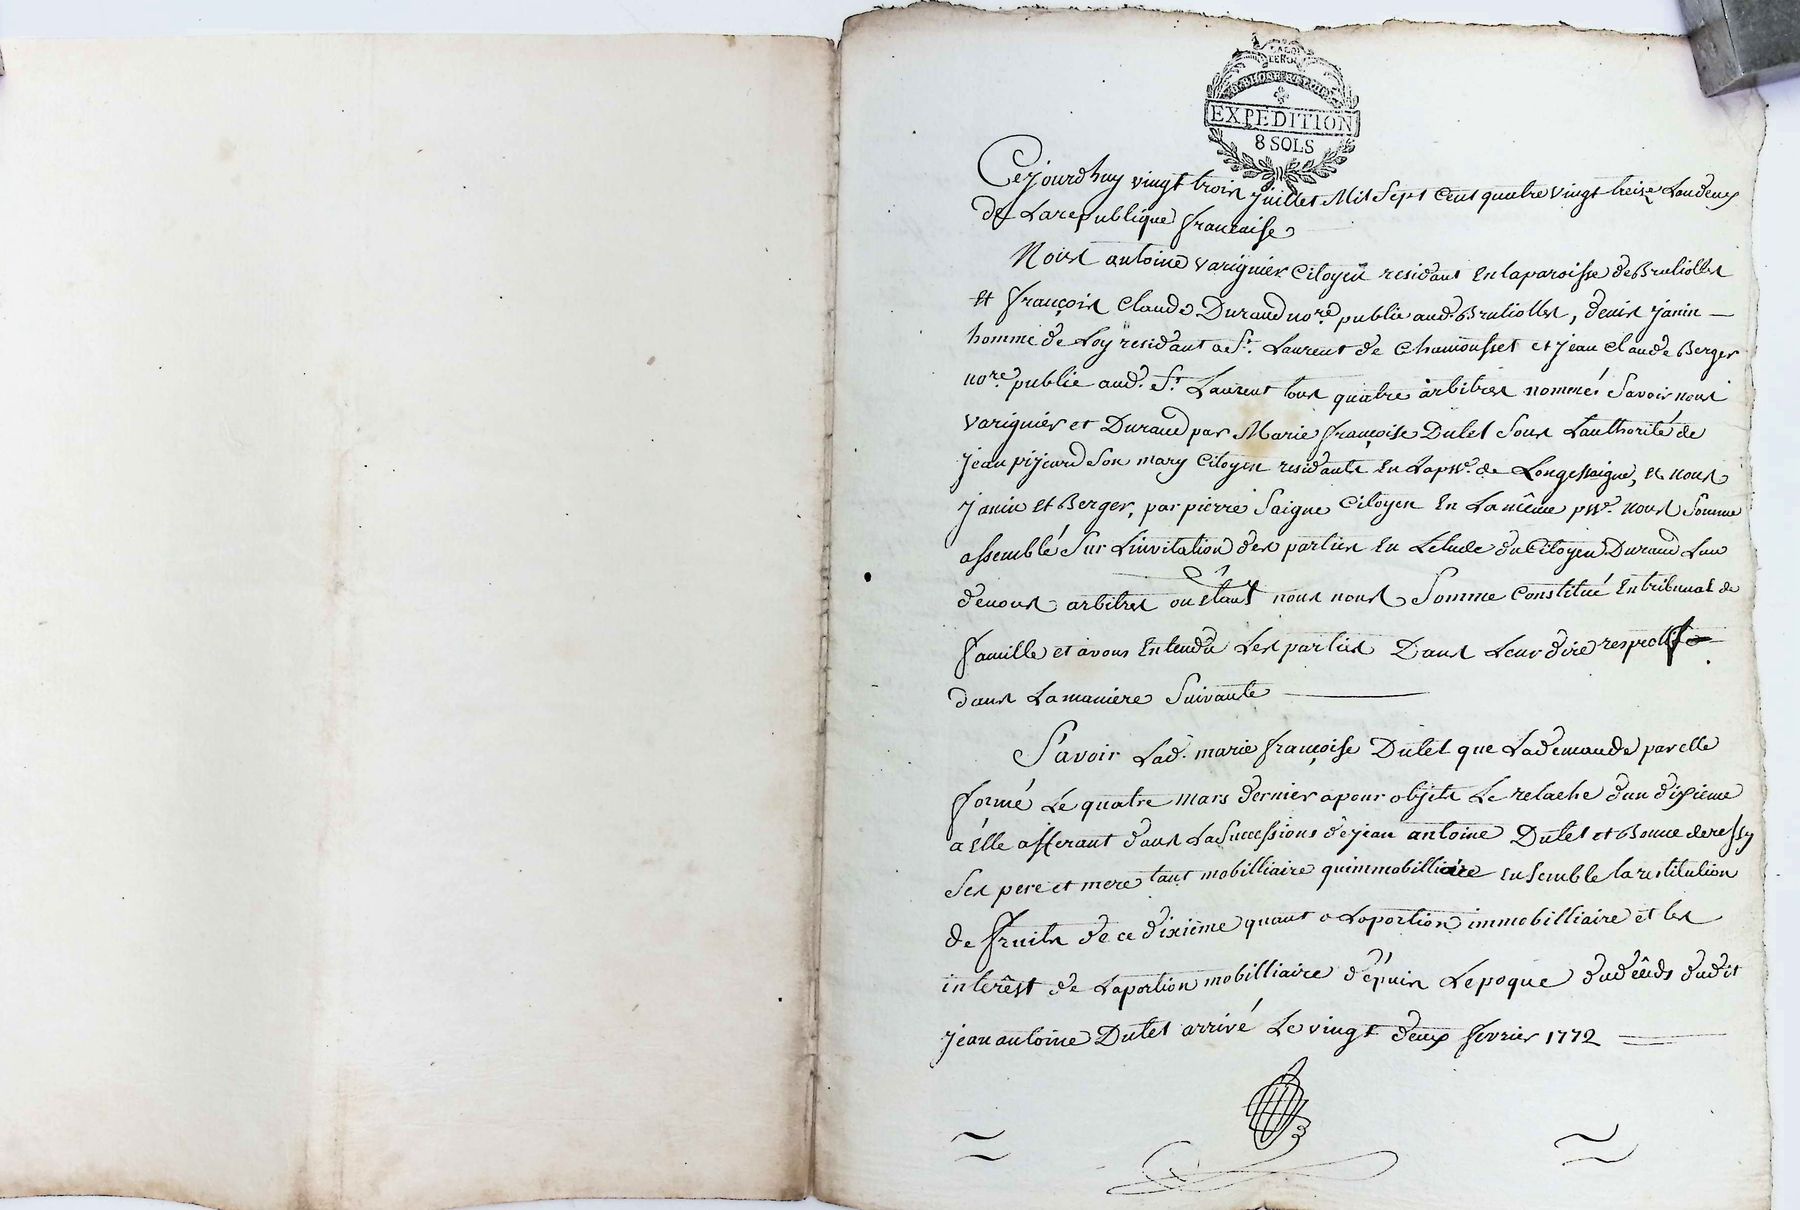 LA LOI
LE ROI
RHONE ET LOIRE
EXPEDITION
8 SOLS
Cejourdhuy vingt trois juillet Mil Sept Cent quatre vingt treize Landeux
de Larepublique francaise
Nous antoine varignier Citoyen residant En laparoisse de Brulioles
et françois Claude Durand no.re public aud. Brulioles, denis janin
homme de Loy residant a S.t Laurent de Chamousset et jean claude Berger
no.re public aud. S.t Laurent tous quatre arbitres nommés Savoir nous
varignier et Durand par Marie françoise Dulet Sous Lauthorité de
jean Son mary Citoyen residante En Lapsse. de Longessaigne, et nous
janin et Berger, par pierre Saigne Citoyen En La même psse. nous Somme
assemblé Sur Linvitation des parties En Letude du Citoyen Durand Lun
denous arbitres ou Etant nous nous Somme Constitué En tribunal de
famille et avons Entendû Les parties Dans Leur dire respectif
dans Lamaniere Suivante
Savoir Lad. marie françoise Dulet que Lademande par elle
formé Le quatre mars dernier apour objete Le relache dun dixieme
a Elle afferant dans La Succession de jean antoine Dulet et Bonne deressy
Ses pere et mere tant mobilliaire quimmobilliaire Ensemble la restitution
de fruits de ce dixième quant a Laportion immobilliaire et les
interêst de Laportion mobilliaire dépuis Lepoque du décéds dudit
jean antoine Dulet arrivé Le vingt deux fevrier 1772